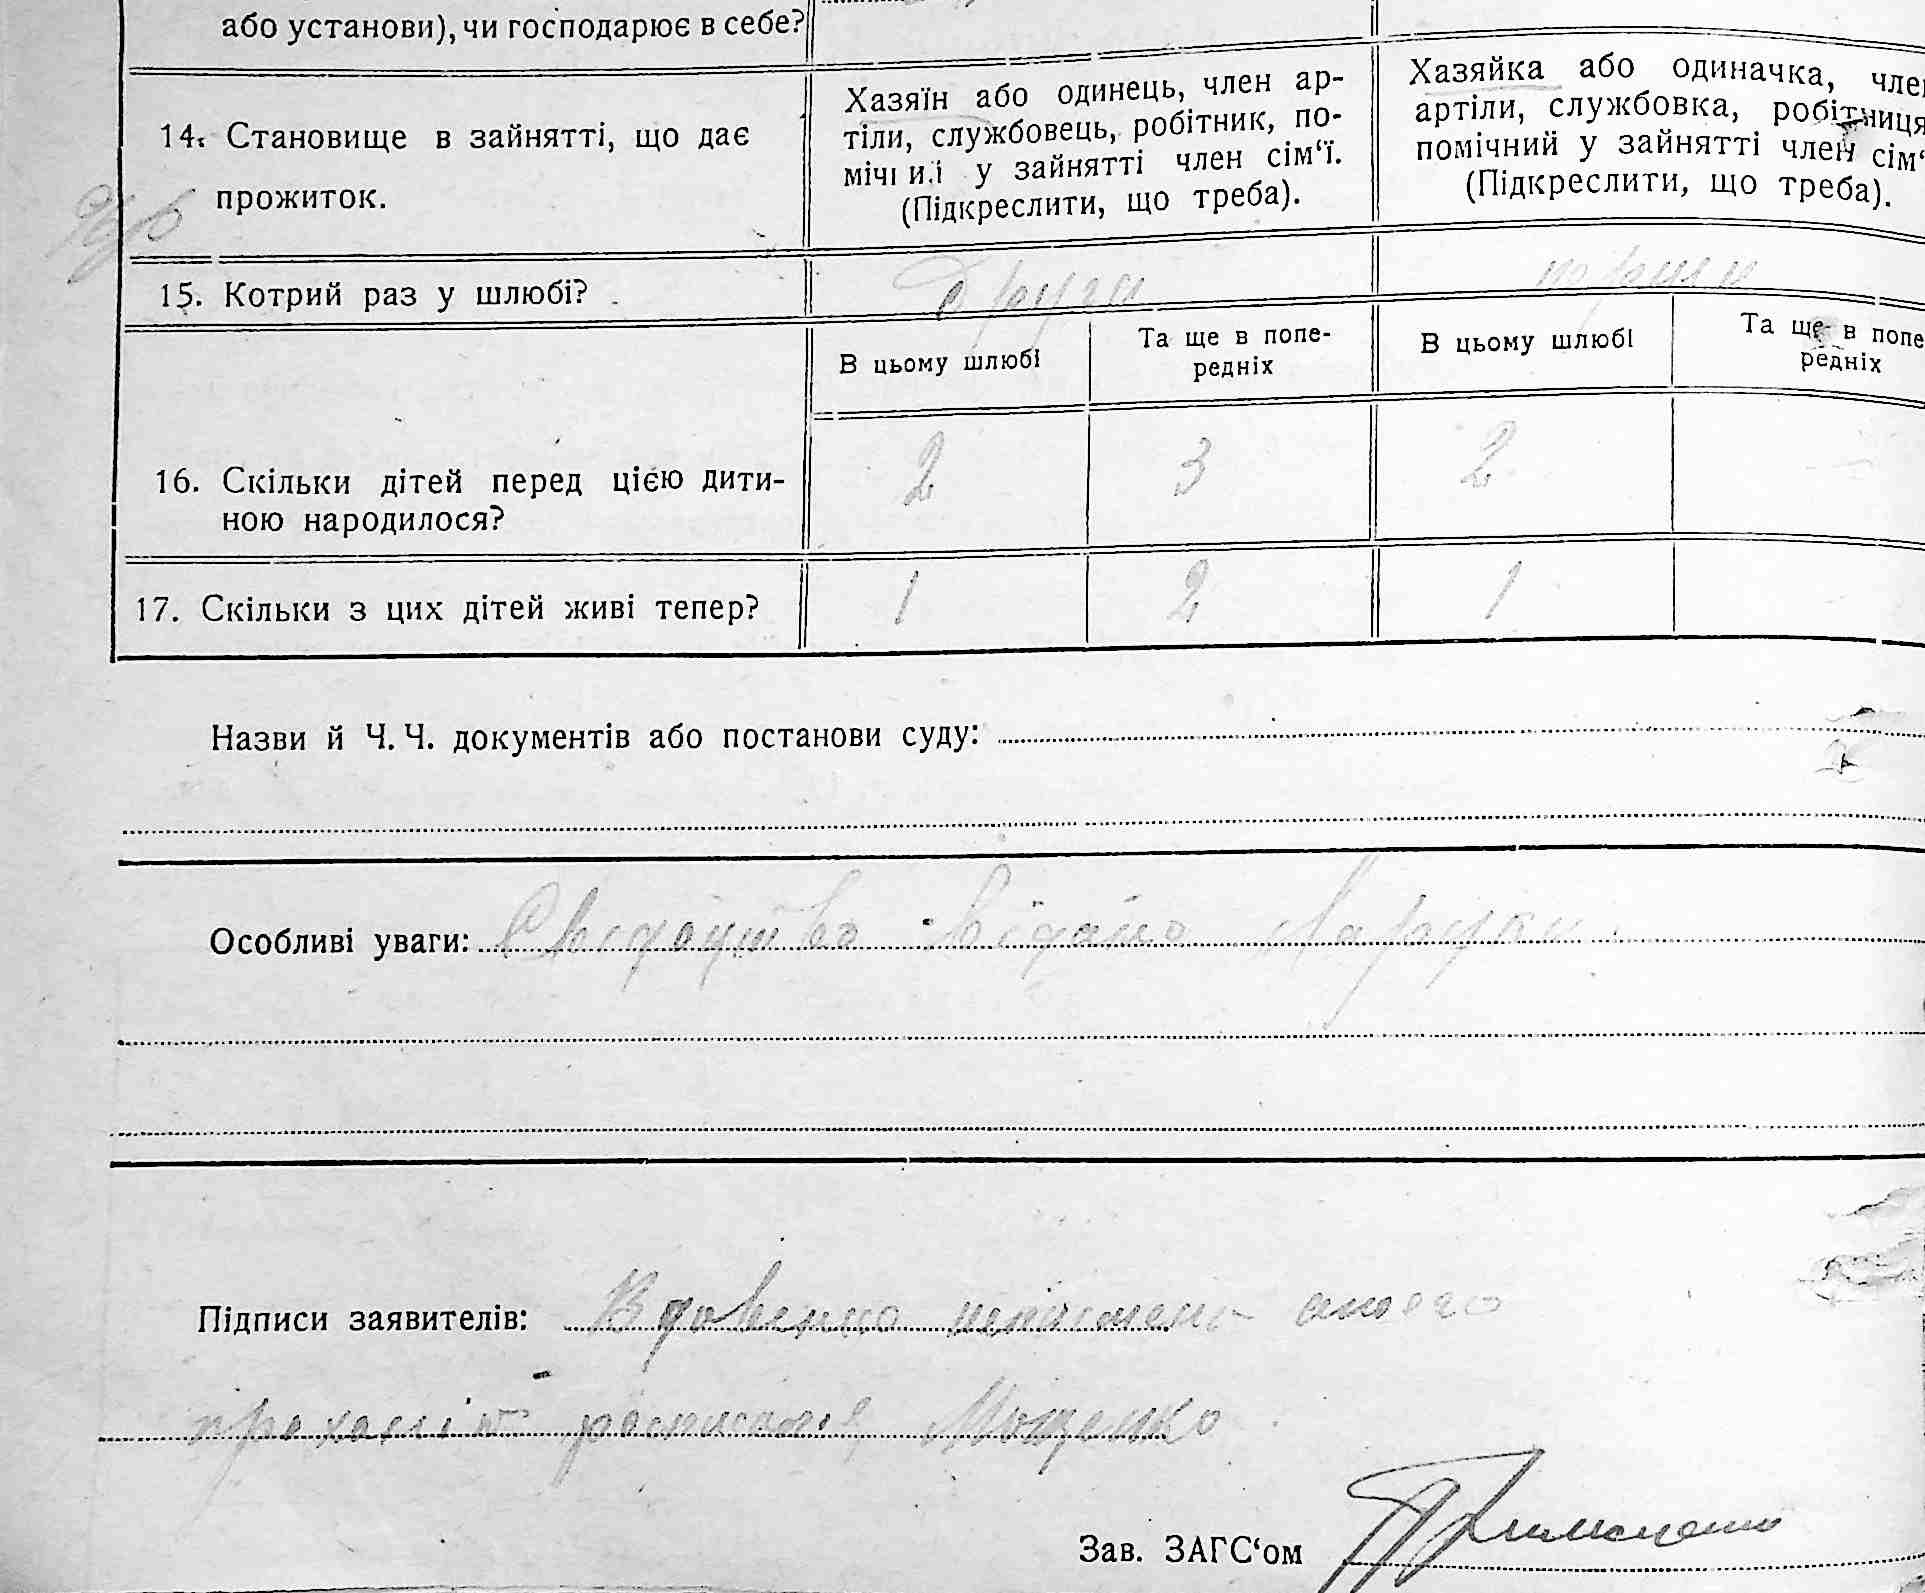 або установи), чи господарює в себе?
14. Становище в зайнятті, що дає
прожиток.
Хазяїн або одинець, член ар-
тіли, службовець, робітник, по-
мічний у зайнятті член сім‘ї.
(Підкреслити, що треба).
Хазяйка або одиначка, член
артіли, службовка, робітниця
помічний у зайнятті член сім‘
(Підкреслити, що треба).
15. Котрий раз у шлюбі?
друга
перши
В цьому шлюбі
Та ще в попе-
редніх
В цьому шлюбі
Та ще в попе
редніх
16. Скільки дітей перед цією дити-
ною народилося?
2 3 2 —
17. Скільки з цих дітей живі тепер?
1 2 1
Назви й Ч. Ч. документів або постанови суду:
Особливі уваги: Свідоцтво видано на руки
Підписи заявителів: Вдовенко
Мощенко
Зав. ЗАГС‘ом